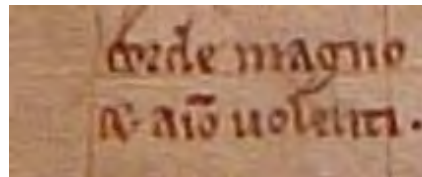 corde magno
& aīo uolenti.